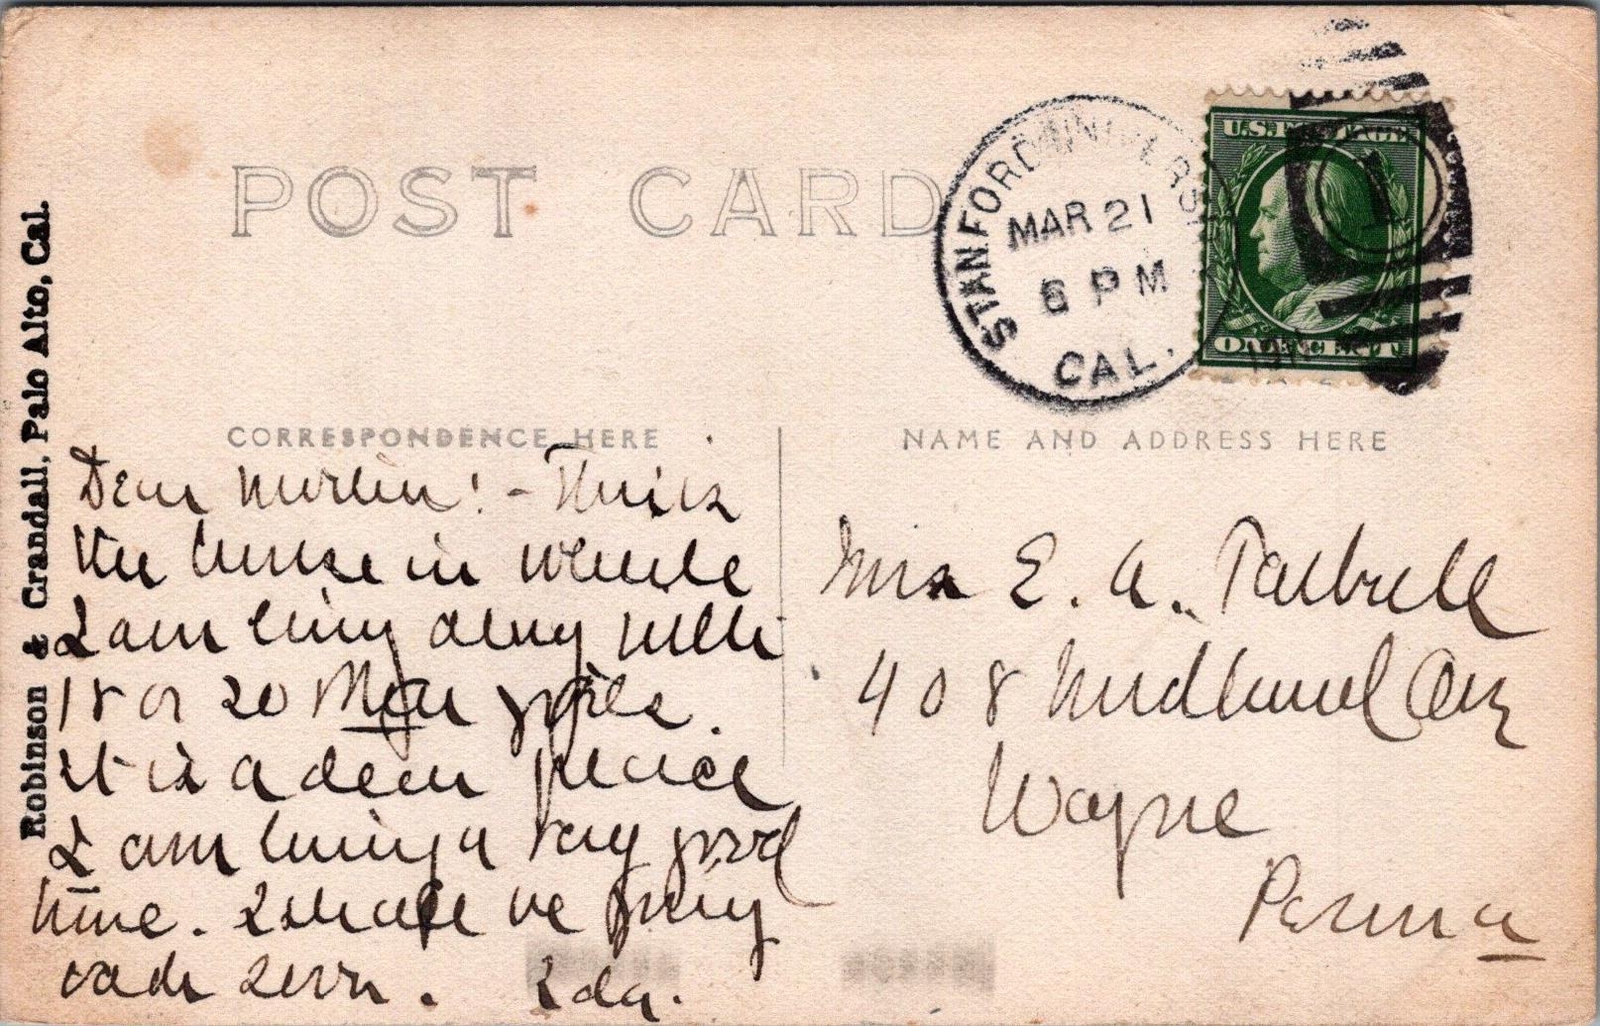 POST CARD
STANFORD UNIVERSITY
MAR 21
6 PM
CAL.
U.S. POSTAGE
1
ONE CENT
Robinson & Crandall, Palo Alto, Cal.
CORRESPONDENCE HERE
Dear :- This is
the house in which
I am living along with
18 or 20 other girls.
It is a dear place
I am having a very good
time. I shall be going
back soon. Ida.
NAME AND ADDRESS HERE
Mrs E. A.
408 Ave
Wayne
Penna